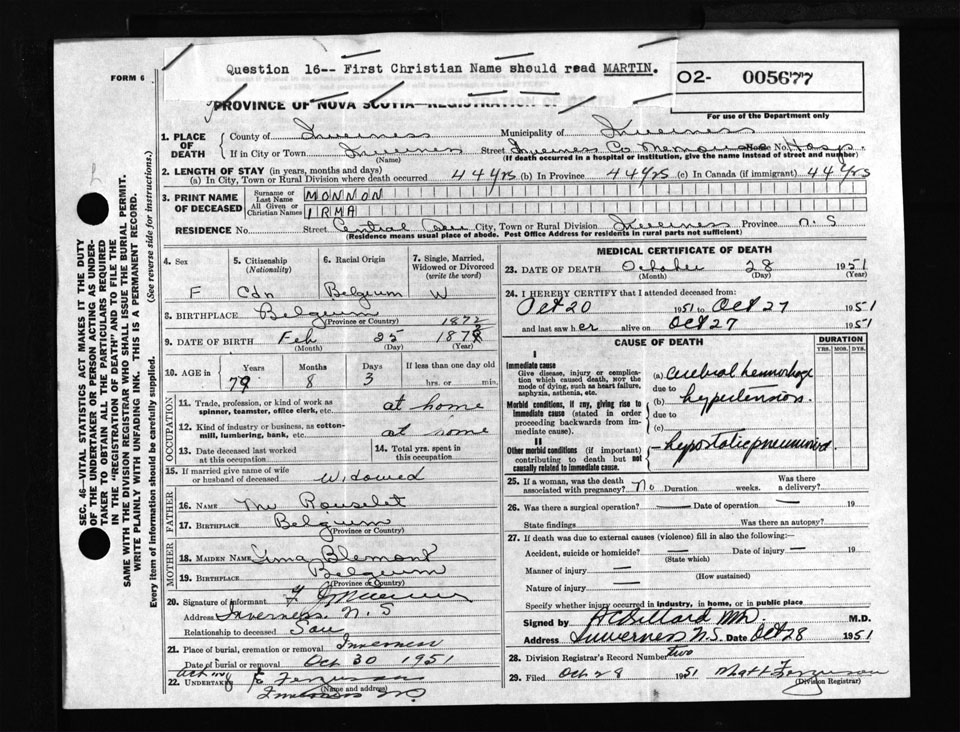 Question 16-- First Christian Name should read MARTIN.
O2- 005677
FORM 6
PROVINCE OF NOVA SCOTIA—REGISTRATION OF DEATH
For use of the Department only
SEC. 46—VITAL STATISTICS ACT MAKES IT THE DUTY
OF THE UNDERTAKER OR PERSON ACTING AS UNDER-
TAKER TO OBTAIN ALL THE PARTICULARS REQUIRED
IN THE "REGISTRATION OF DEATH" AND TO FILE THE
SAME WITH THE DIVISION REGISTRAR WHO SHALL ISSUE THE BURIAL PERMIT.
WRITE PLAINLY WITH UNFADING INK. THIS IS A PERMANENT RECORD.
Every item of information should be carefully supplied. (See reverse side for instructions.)
1. PLACE OF DEATH
County of Inverness Municipality of Inverness
If in City or Town Inverness Street Inverness Co Memorial House No. Hosp.
(Name) (If death occurred in a hospital or institution, give the name instead of street and number)
2. LENGTH OF STAY (in years, months and days)
(a) In City, Town or Rural Division where death occurred 44 yrs (b) In Province 44 yrs (c) In Canada (if immigrant) 44 yrs
3. PRINT NAME OF DECEASED
Surname or Last Name MONNON
All Given or Christian Names IRMA
RESIDENCE No. Street Central Ave City, Town or Rural Division Inverness Province N.S
(Residence means usual place of abode. Post Office Address for residents in rural parts not sufficient)
4. Sex F
5. Citizenship (Nationality) Cdn
6. Racial Origin Belgium
7. Single, Married, Widowed or Divorced (write the word) W
8. BIRTHPLACE Belgium
(Province or Country)
1872
9. DATE OF BIRTH Feb 25
(Month) (Day) (Year)
10. AGE in Years Months Days If less than one day old
79 8 3 hrs. or min.
OCCUPATION
11. Trade, profession, or kind of work as spinner, teamster, office clerk, etc. at home
12. Kind of industry or business, as cotton-mill, lumbering, bank, etc. at home
13. Date deceased last worked at this occupation
14. Total yrs. spent in this occupation
15. If married give name of wife or husband of deceased Widowed
FATHER
16. NAME Rouselet
17. BIRTHPLACE Belgium
(Province or Country)
MOTHER
18. MAIDEN NAME Blemont
19. BIRTHPLACE Belgium
(Province or Country)
20. Signature of informant
Address Inverness, N.S
Relationship to deceased Son
21. Place of burial, cremation or removal Inverness
Date of burial or removal Oct 30 1951
22. UNDERTAKER Ferguson
(Name and address)
Inverness NS
MEDICAL CERTIFICATE OF DEATH
23. DATE OF DEATH October 28 1951
(Month) (Day) (Year)
24. I HEREBY CERTIFY that I attended deceased from:
Oct 20 1951 to Oct 27 1951
and last saw her alive on Oct 27 1951
CAUSE OF DEATH
DURATION
YRS. MOS. DYS.
I
Immediate cause
Give disease, injury or complication which caused death, NOR the mode of dying, such as heart failure, asphyxia, asthenia, etc.
(a) cerebral hemorrhage
due to
(b) hypertension
due to
(c)
Morbid conditions, if any, giving rise to immediate cause (stated in order proceeding backwards from immediate cause).
II
Other morbid conditions (if important) contributing to death but not causally related to immediate cause.
hypostatic pneumonia
25. If a woman, was the death associated with pregnancy? No Duration weeks. Was there a delivery?
26. Was there a surgical operation? — Date of operation — 19
State findings Was there an autopsy?
27. If death was due to external causes (violence) fill in also the following:
Accident, suicide or homicide? — Date of injury — 19
(State which)
Manner of injury —
(How sustained)
Nature of injury —
Specify whether injury occurred in industry, in home, or in public place
Signed by M.D.
Address Inverness N.S. Date Oct 28 1951
28. Division Registrar's Record Number two
29. Filed Oct 28 1951 Ferguson
(Division Registrar)